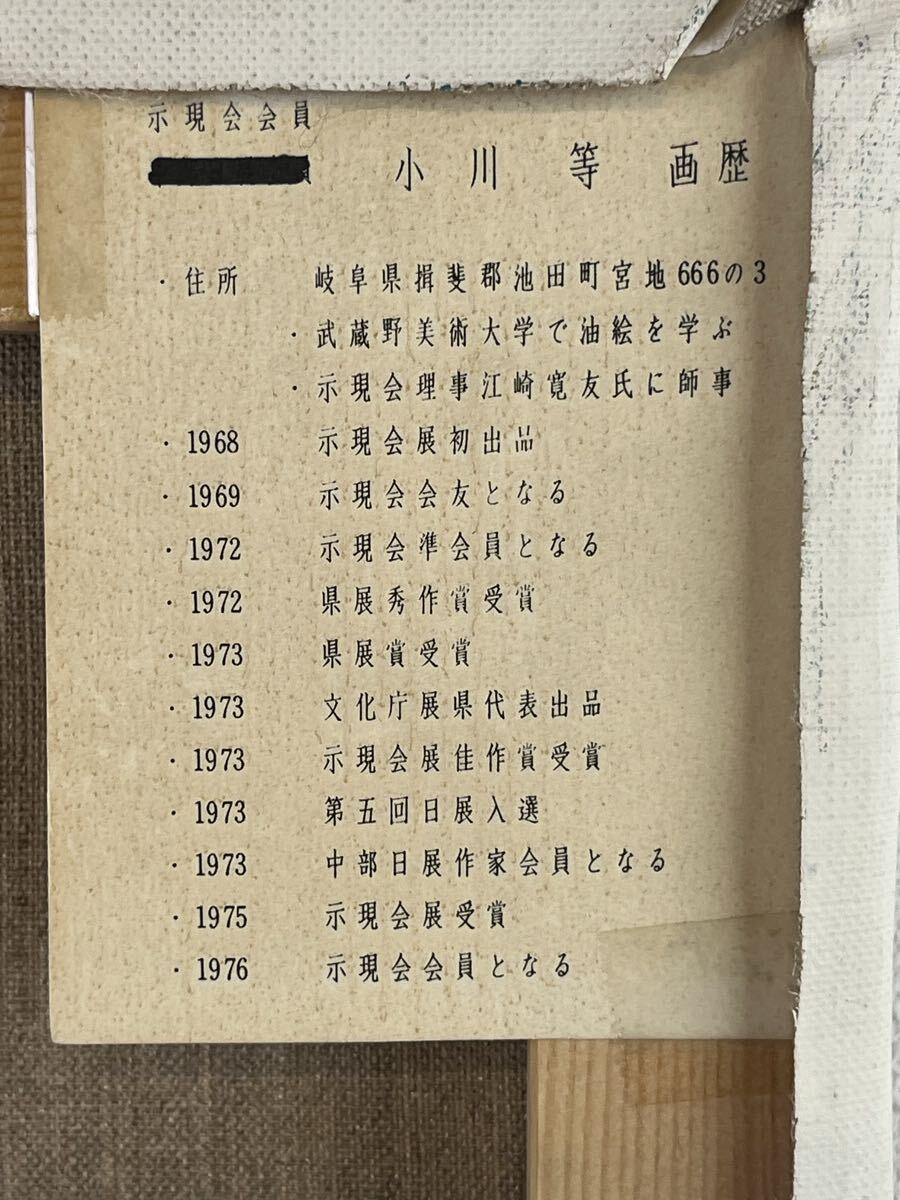 示現会会員
小川 等 画歴
・住所 岐阜県揖斐郡池田町宮地666の3
・武蔵野美術大学で油絵を学ぶ
・示現会理事江崎寛友氏に師事
・1968 示現会展初出品
・1969 示現会会友となる
・1972 示現会準会員となる
・1972 県展秀作賞受賞
・1973 県展賞受賞
・1973 文化庁展県代表出品
・1973 示現会展佳作賞受賞
・1973 第五回日展入選
・1973 中部日展作家会員となる
・1975 示現会展受賞
・1976 示現会会員となる